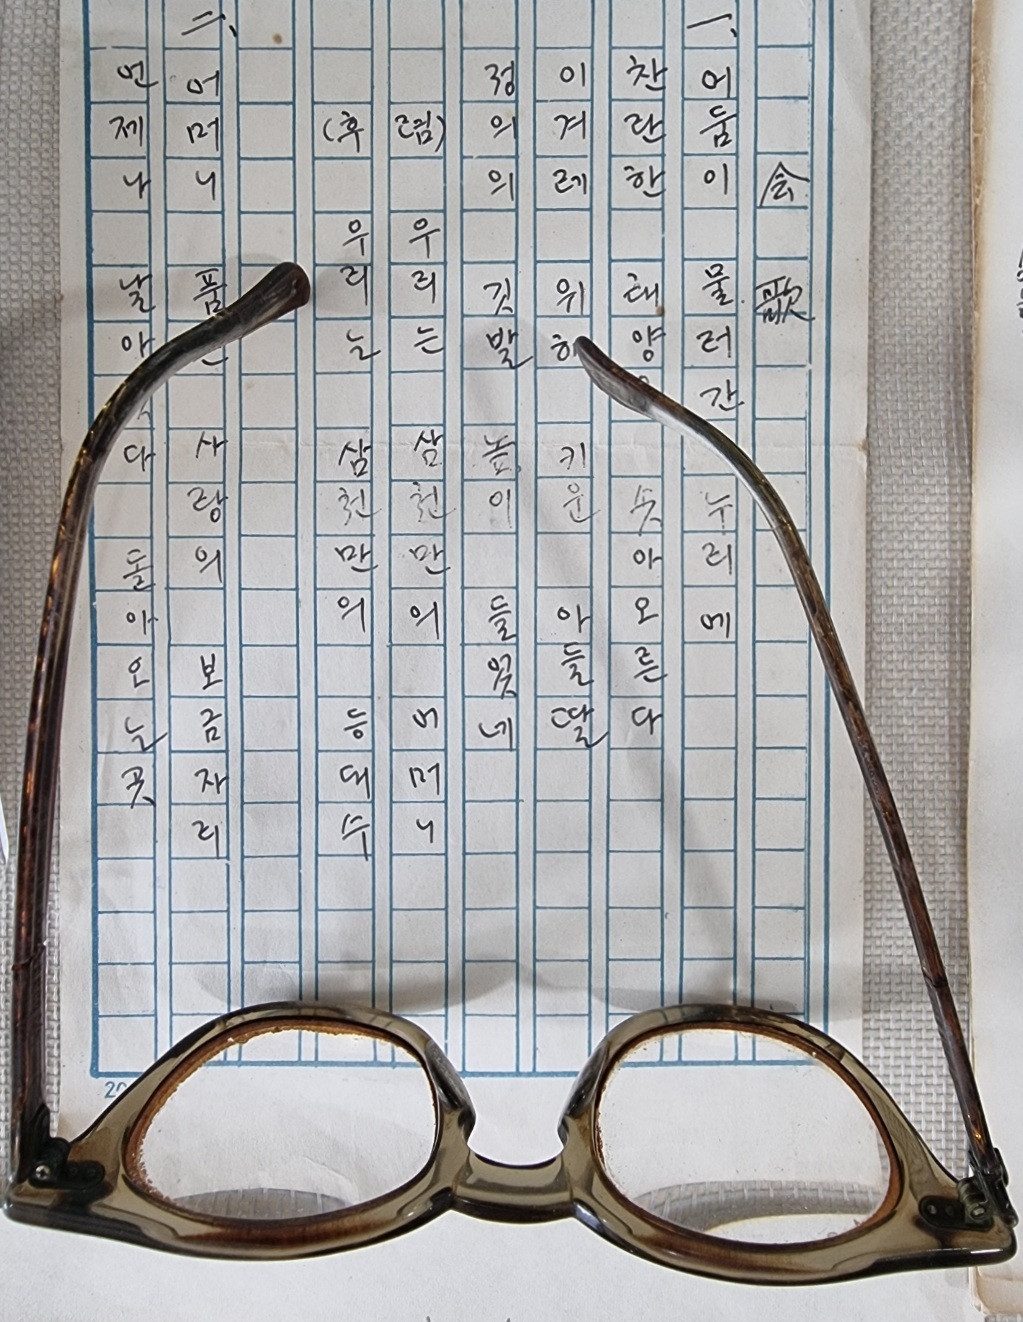 会歌
一、어둠이 물러간 누리에
찬란한 태양이 솟아오른다
이겨레 위해 키운 아들딸
정의의 깃발 높이 들었네
(후렴)
우리는 삼천만의 어머니
우리는 삼천만의 등대수
二、어머니 품은 사랑의 보금자리
언제나 돌아오는 곳
20